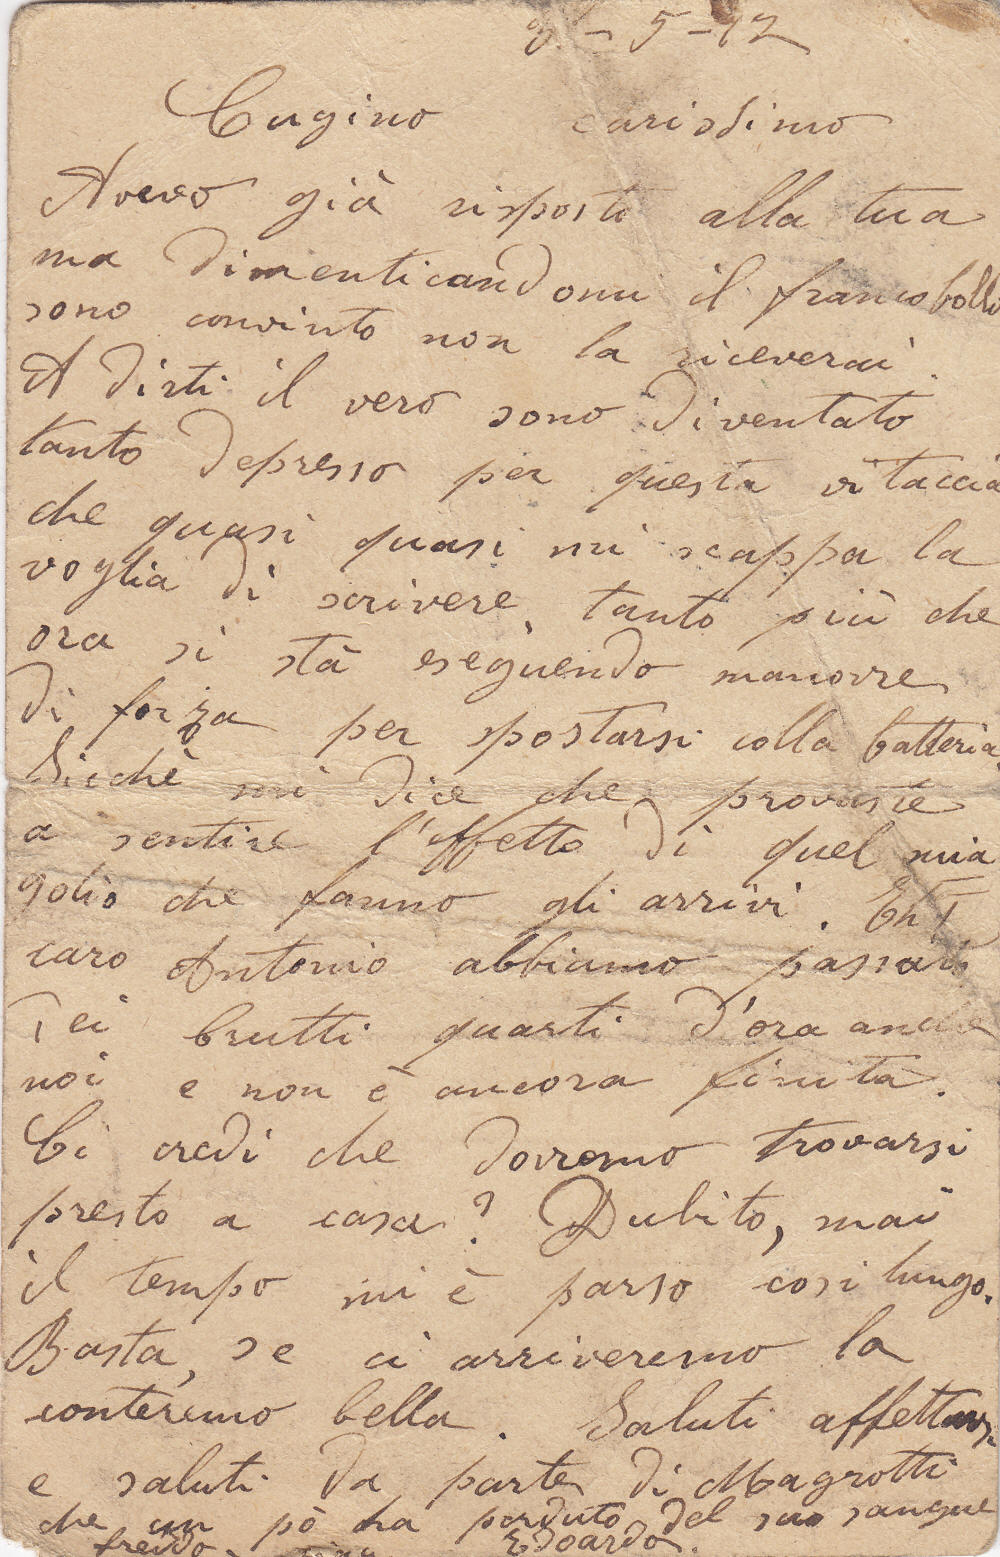 8 - 5 - 12
Cugino carissimo
Avevo già risposto alla tua
ma dimenticandomi il francobollo
sono convinto non la riceverai.
A dirti il vero sono diventato
tanto depresso per questa vitaccia
che quasi quasi mi scappa la
voglia di scrivere, tanto più che
ora si stà eseguendo manovre
di forza per spostarsi colla batteria.
Sicchè mi dice che provaste
a sentire l'effetto di quel mia
golio che fanno gli arrivi. Eh!
caro Antonio abbiamo passati
dei brutti quarti d'ora anche
noi e non è ancora finita.
Ci credi che dovremo trovarsi
presto a casa? Dubito, mai
il tempo mi è parso così lungo.
Basta, se ci arriveremo la
conteremo bella. Saluti affettuosi
e saluti da parte di Magrotti
che un pò ha perduto del suo sangue
freddo. Edoardo.